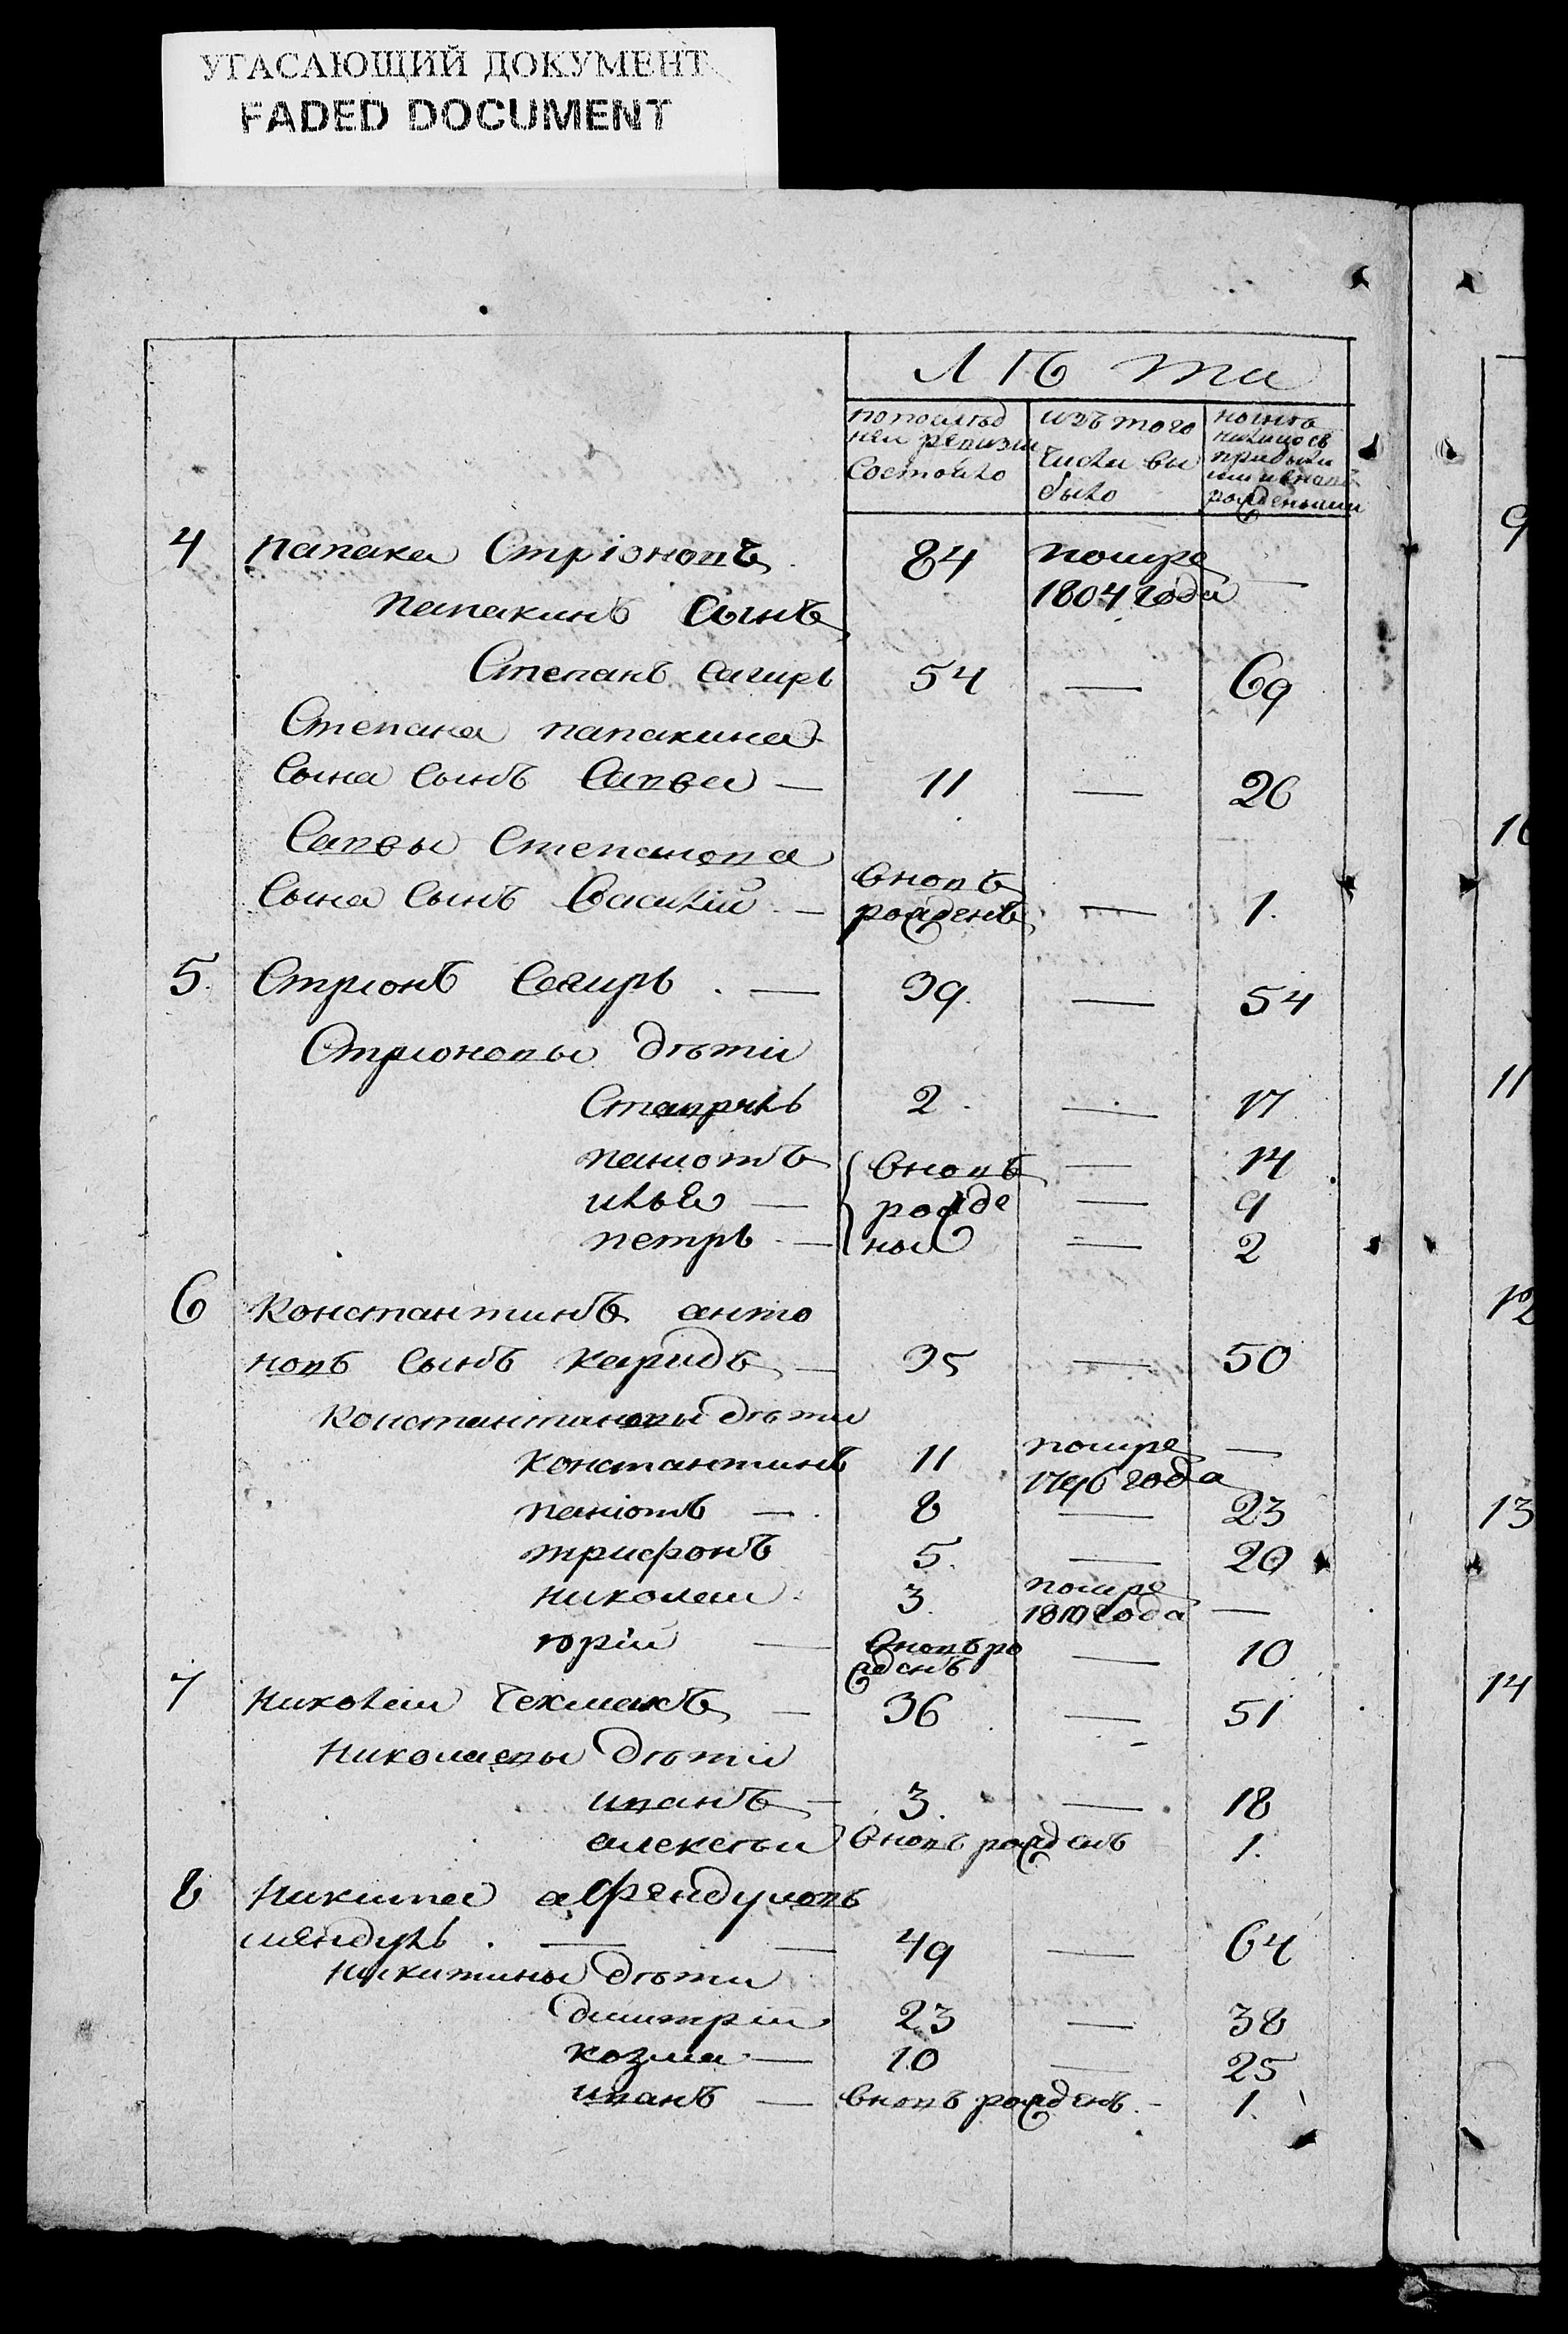 УГАСАЮЩИЙ ДОКУМЕНТ
FADED DOCUMENT
Лѣта
по послѣд
ней ревизи
состояло
изъ того
числа вы
было
ныне
прибыли
рожденыии
4 папака Стріоновъ 84 помре —
1804 года
папакинъ Сынъ
Степанъ сагиръ 54 — 69
Степана папакина
Сына Сынъ Савва — 11 — 26
Саввы Степанова
Сына Сынъ Василій — вновь рожденъ — 1.
5. Стріонъ Сагиръ — 39. — 54
Стріоновы дѣти
Ставрилъ 2. — 17
паніотъ вновь — 14
илья — рожде — 9
петръ — ны — 2
6 Константинъ анто
новъ Сынъ Каридъ — 35 — 50
Константиновы дѣти
Константинъ 11 помре —
1796 года
паніотъ — 8 — 23
трифонъ 5. — 20
николаи 3. помре
1810 года —
юрій — вновь ро
жденъ — 10
7 николаи Чехмакъ — 36 — 51
Николаевы дѣти
иванъ — 3. — 18
алексѣи вновь рожденъ 1.
8 Никита афендуловъ
шендуль. — — 49 — 64
Никитины дѣти
дмитріи 23 — 38
козма — 10 — 25
иванъ — вновь рожденъ. — 1.
9
10
11
12
13
14